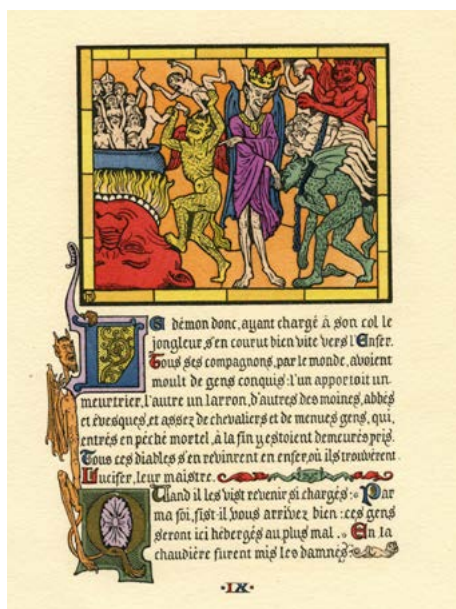 Le démon donc, ayant chargé à son col le
jongleur, s'en courut bien vite vers l'Enfer.
Tous ses compagnons, par le monde, avoient
moult de gens conquis: l'un apportoit un
meurtrier, l'autre un larron, d'autres des moines, abbés
et évesques, et assez de chevaliers et de menues gens, qui,
entrés en péché mortel, à la fin y estoient demeurés pris.
Tous ces diables s'en revinrent en enfer, où ils trouvèrent
Lucifer, leur maistre.
Quand il les vist revenir si chargés: « Par
ma foi, fist-il, vous arrivez bien: ces gens
seront ici hébergés au plus mal. » En la
chaudière furent mis les damnés:
·IX·